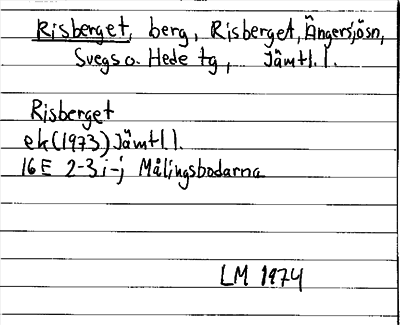 Risberget, berg, Risberget, Ängersjösn,
Svegs o. Hede tg, Jämtl. l.
Risberget
ek (1973) Jämtl. l.
16E 2-3 i-j Målingsbodarna
LM 1974